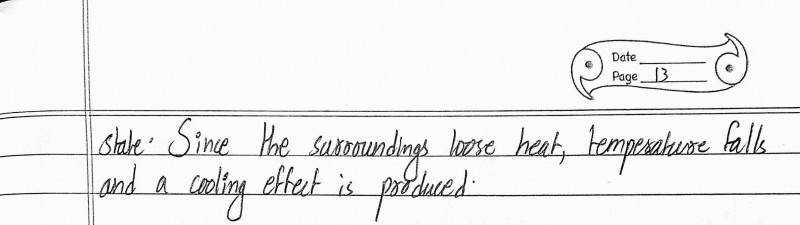 Date
Page 13
state. Since the surroundings loose heat, temperature falls
and a cooling effect is produced.